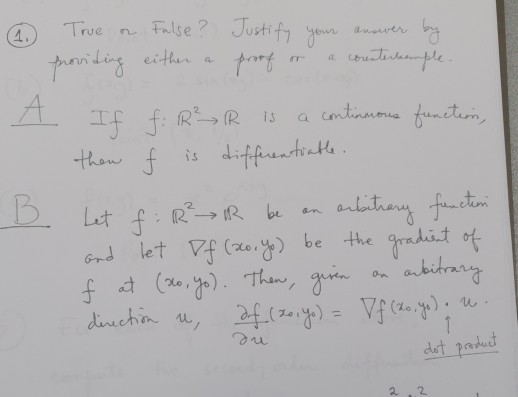 1. True or False? Justify your answer by
providing either a proof or a counterexample.
A If f: ℝ² → ℝ is a continuous function,
then f is differentiable.
B Let f: ℝ² → ℝ be an arbitrary function
and let ∇f(x₀,y₀) be the gradient of
f at (x₀,y₀). Then, given an arbitrary
direction u, ∂f/∂u (x₀,y₀) = ∇f(x₀,y₀) · u.
↑
dot product
2 2